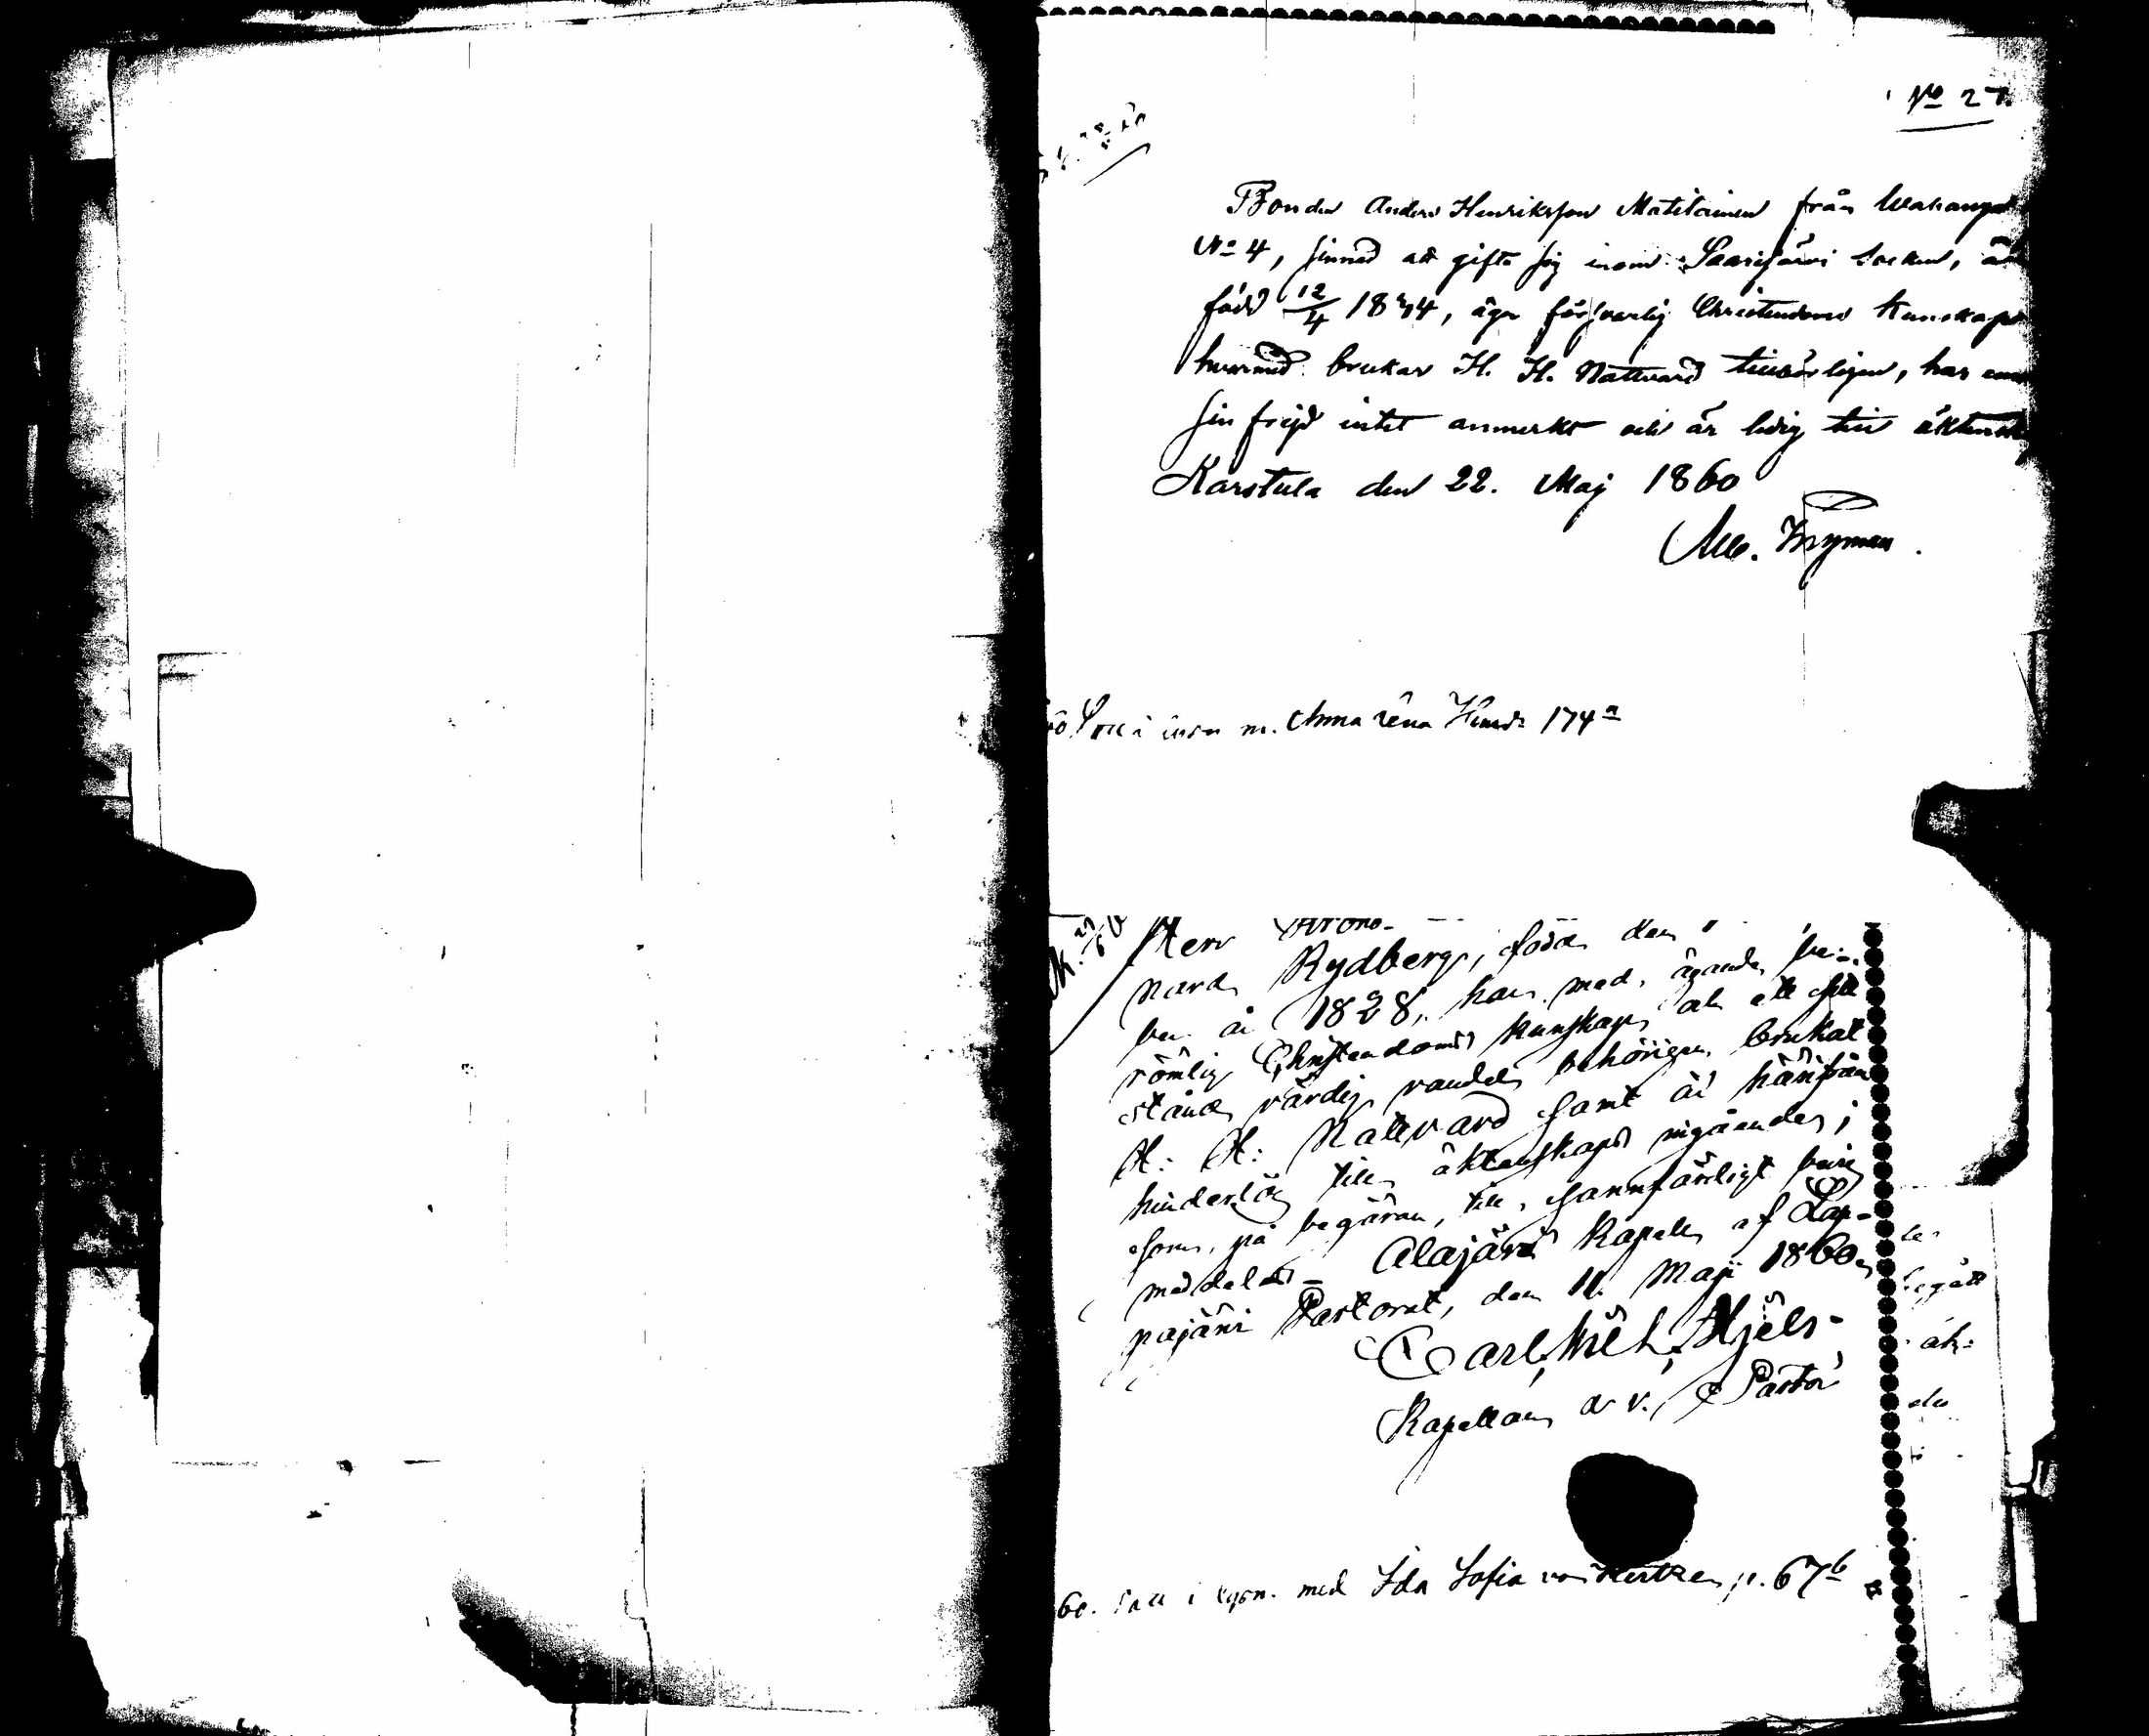 No 27.
Bonden Anders Henriksson Matilainen från Wahanga
No 4, sinnad att gifta sig inom Saarijärvi Socken, är
född 12/4 1834, äger försvarlig Christendoms kunskap
hvarmed brukar H. H. Nattvard tillbörligen, har
sin frejd intet anmerkt och är ledig till äktensk
Karstula den 22. Maj 1860
Alb. Bryman.
i lysn m. Anna Lena 174a
Herr
nard Rydberg, född den
ber år 1828, har med, ägande be-
römlig Christendoms kunskap och ett sitt
stånd värdig vandel behörigen brukat
H: H: Nattvard samt är härifrån
hinderlös till äktenskaps ingående;
som, på begäran, till sannfärdigt bevis
meddelas_ Alajärvi Kapell af Lap-
pajärvi Pastorat, den 11. Maji 1860.
Carl Wilh. Hjelt.
Kapellan o v. Pastor
60. i lysn. med Ida Sofia von Hertzen p. 67b